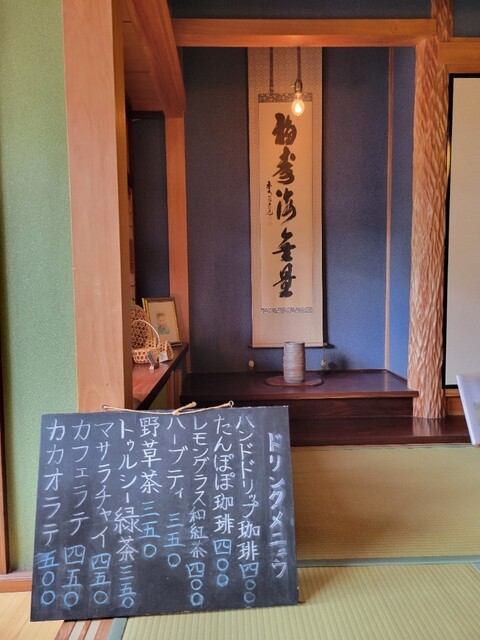 福寿海無量
ドリンクメニュウ
ハンドドリップ珈琲 四〇〇
たんぽぽ珈琲 四〇〇
レモングラス和紅茶 四〇〇
ハーブティ 三五〇
野草茶 三五〇
トゥルシー緑茶 三五〇
マサラチャイ 四五〇
カフェラテ 四五〇
カカオラテ 五〇〇